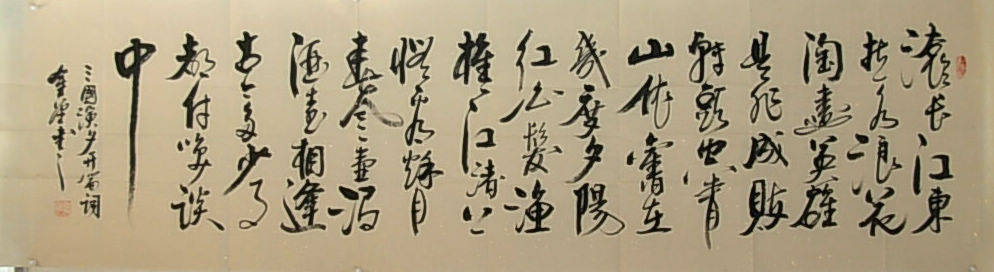 滚长江東
逝水浪花
淘盡英雄
是非成败
转頭空青
山依舊在
幾度夕陽
红白髮渔
樵江渚上
惯看秋月
春风一壶浊
酒喜相逢
古今多少事
都付笑谈
中
三國演义开篇詞